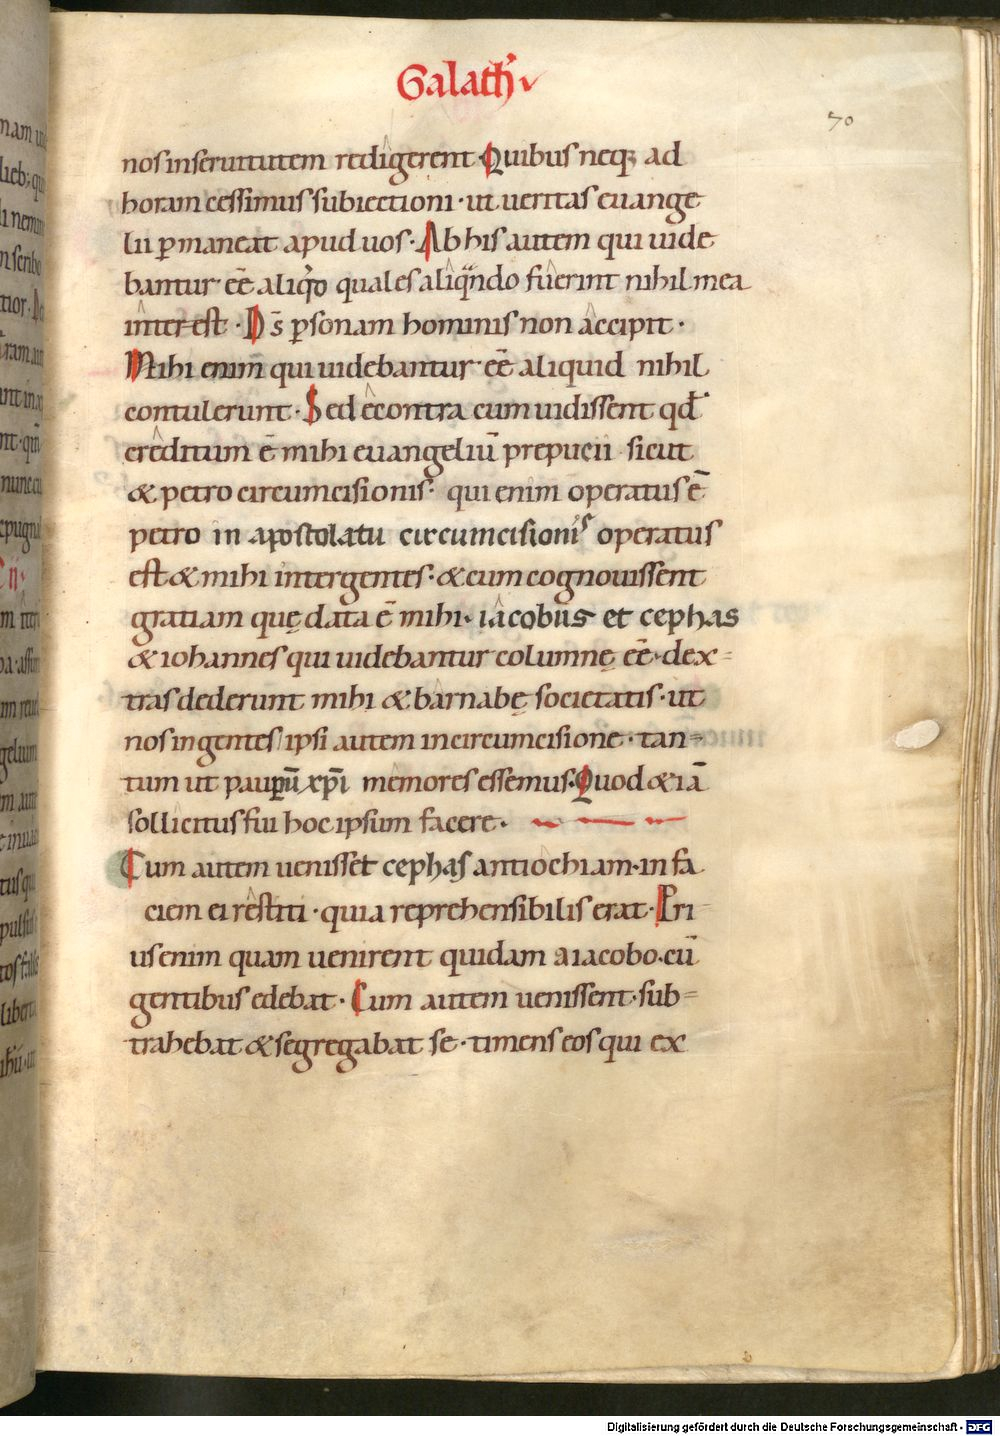 Galath̓
70
nos inseruitutem redigerent · Quibus neq; ad
horam cessimus subiectioni · ut ueritas euange
lii p̄maneat apud uos · Ab his autem qui uide
bantur eē̄ aliqͥd quales aliqn̄do fuerint nihil mea
interest · D s̄ p̄sonam hominis non accipit ·
Mihi enim̄ qui uidebantur eē̄ aliquid nihil
contulerunt · Sed econtra cum uidissent qd̄
creditum ē mihi euangeliū prepucii sicut
& petro circumcisionis · qui enim operatus ē
petro in apostolatu circumcisionis operatus
est & mihi inter gentes · & cum cognouissent
gratiam quę data ē mihi · iacobus et cephas
& iohannes qui uidebantur columnę eē̄ · dex=
tras dederunt mihi & barnabę societatis · ut
nos in gentes / ipsi autem incircumcisione · tan=
tum ut paup̄ū xp̄i memores essemus · Quod & iā
sollicitus fui hoc ipsum facere ·
Cum autem uenisset cephas antiochiam · in fa
ciem ei restiti · quia reprehensibilis erat · Pri
us enim quam uenirent quidam a iacobo · cū
gentibus edebat · Cum autem uenissent · sub=
trahebat & segregabat se · timens eos qui ex
Digitalisierung gefördert durch die Deutsche Forschungsgemeinschaft - DFG